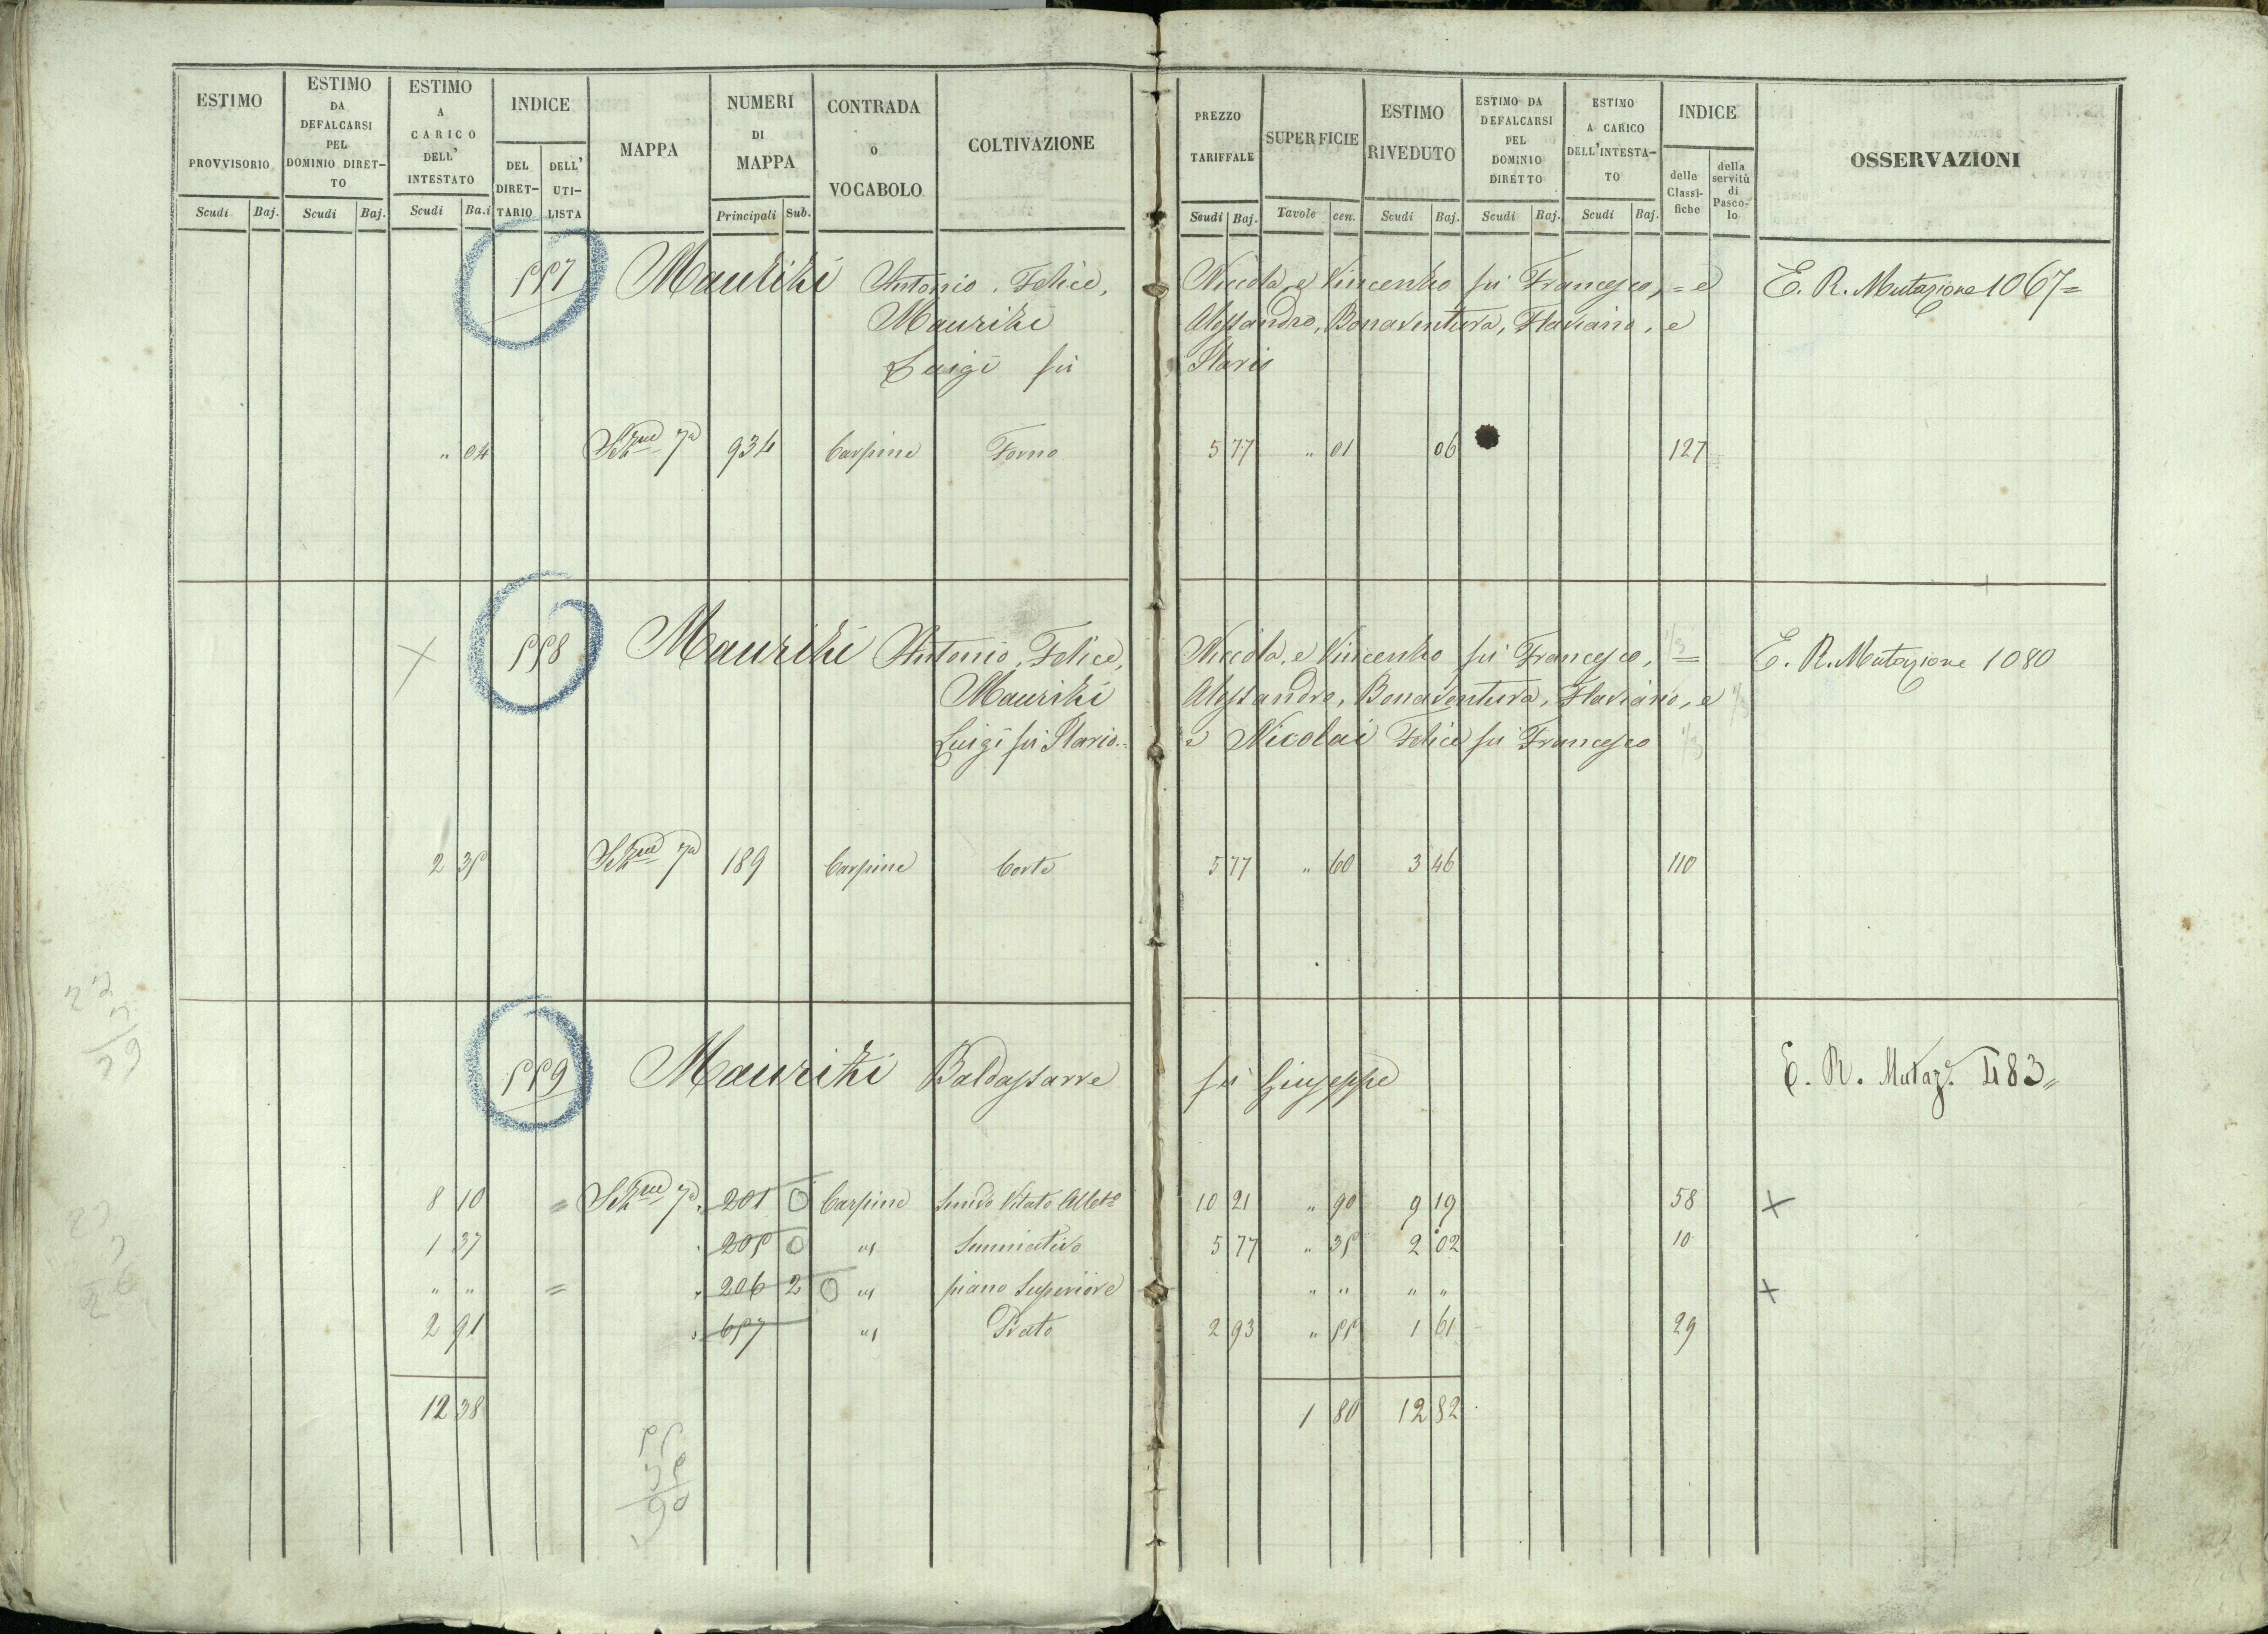 ESTIMO PROVVISORIO Scudi Baj.
ESTIMO DA DEFALCARSI PEL DOMINIO DIRET-TO Scudi Baj.
ESTIMO A CARICO DELL' INTESTATO Scudi Ba.i
INDICE DEL DIRET-TARIO DELL' UTI-LISTA
MAPPA
NUMERI DI MAPPA Principali Sub.
CONTRADA O VOCABOLO
COLTIVAZIONE
PREZZO TARIFFALE Scudi Baj.
SUPERFICIE Tavole cen.
ESTIMO RIVEDUTO Scudi Baj.
ESTIMO DA DEFALCARSI PEL DOMINIO DIRETTO Scudi Baj.
ESTIMO A CARICO DELL'INTESTA-TO Scudi Baj.
INDICE delle Classi-fiche della servitù di Pasco-lo
OSSERVAZIONI
557 Maurizi Antonio, Felice, Niccola, e Vincenzo fu Francesco, = e E. R. Mutazione 1067=
Maurizi Alessandro, Bonaventura, Flaviano, e
Luigi fu Ilario
" 04 Sezne 7a 934 Carpine Forno 5 77 " 01 06 127
558 Maurizi Antonio, Felice, Niccola, e Vincenzo fu Francesco, = 1/3 E. R. Mutazione 1080
Maurizi Alessandro, Bonaventura, Flaviano, e 1/3
Luigi fu Ilario.. e Nicolai Felice fu Francesco 1/3
2 35 Sezne 7a 189 Carpine Corte 5 77 " 60 3 46 110
559 Maurizi Baldassarre fu Giuseppe E. R. Mutaz.e 483"
8 10 = Sezne 7a 201 0 Carpine Semvo Vitato Allbto 10 21 " 90 9 19 58 +
1 37 205 0 " Seminativo 5 77 " 35 2 02 10
" " = 206 2 0 " piano Superiore " " " " +
2 91 657 " Prato 2 93 " 55 1 61 29
12 38 1 80 12 82
55
35
90